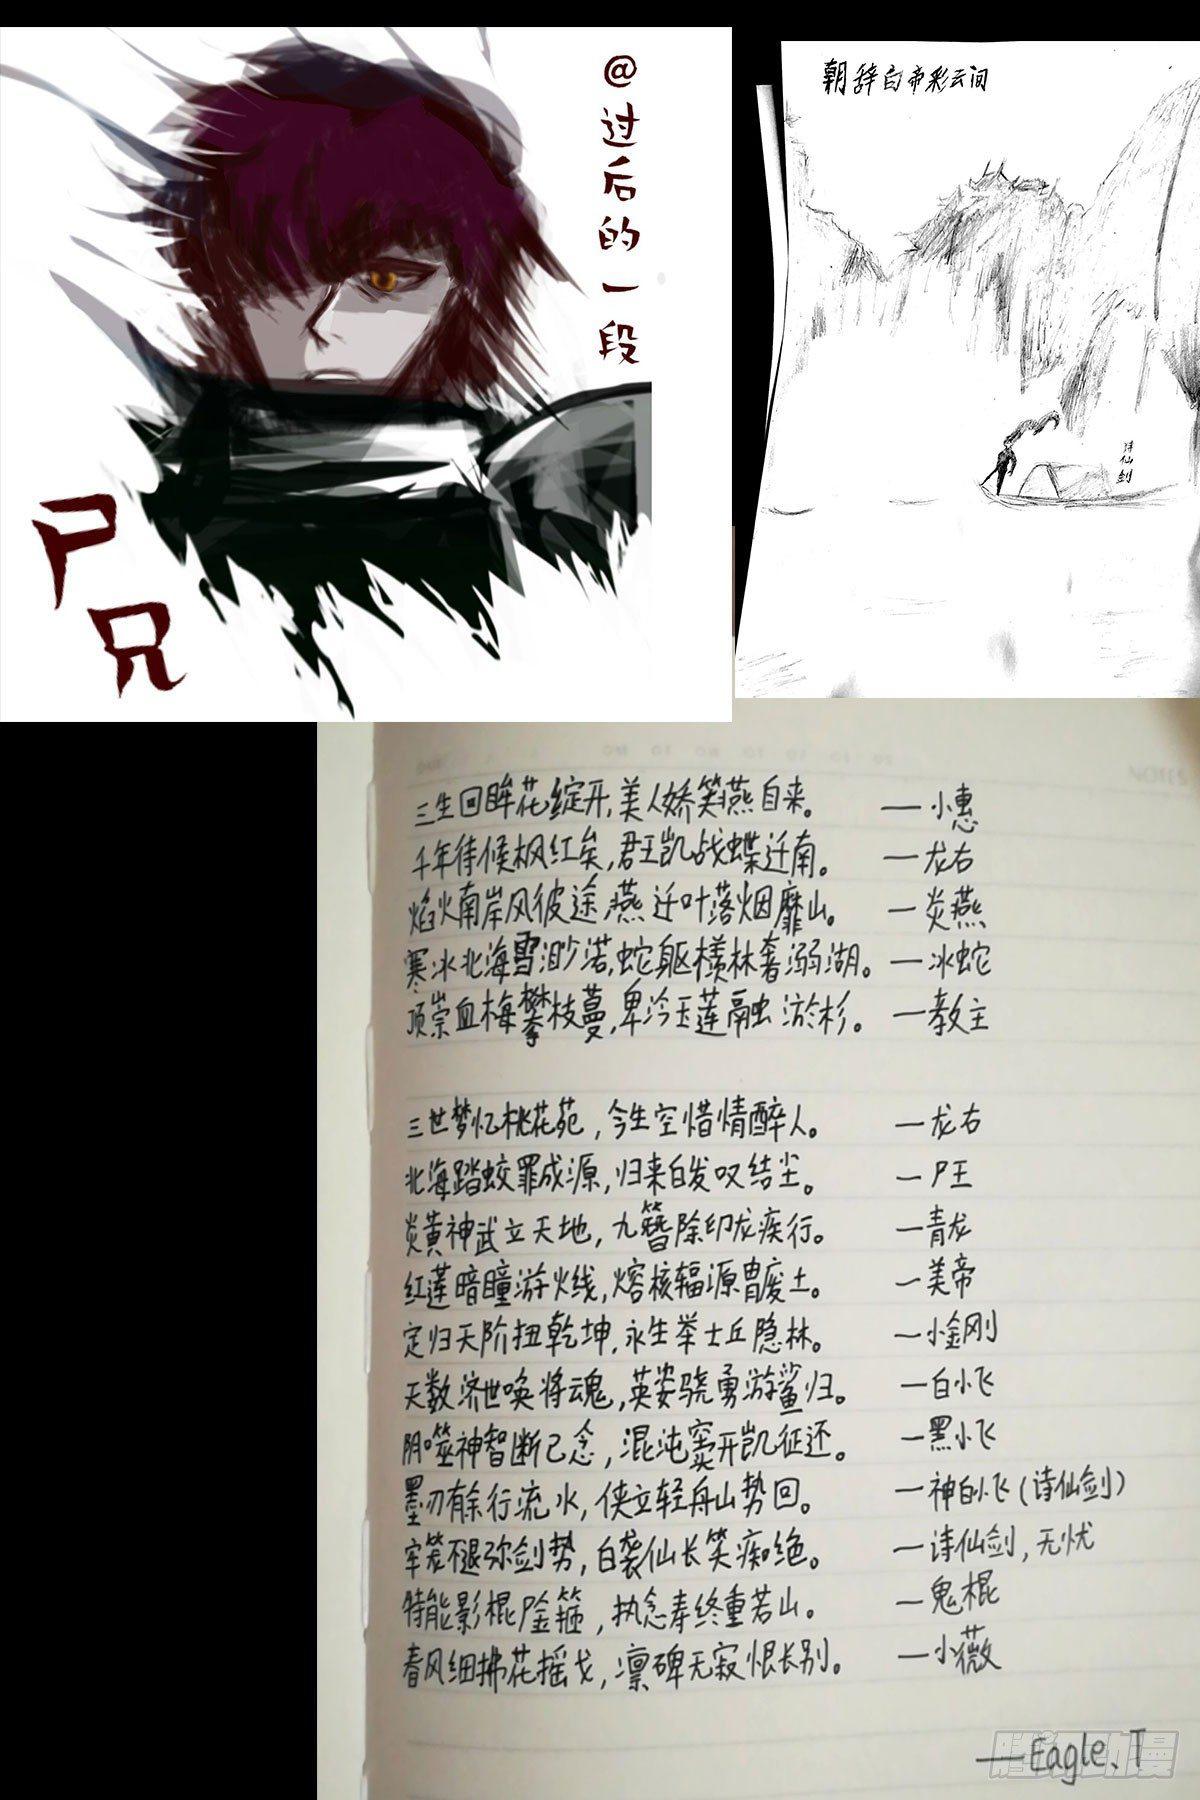 @过后的一段
尸兄
朝辞白帝彩云间
诗仙剑
三生回眸花绽开,美人娇笑燕自来。 —小惠
千年待候枫红矣,君王凯战蝶迁南。 —龙右
焰火南岸风彼途,燕迁叶落烟靡山。 —炎燕
寒冰北海雪渺茫,蛇躯横林奢溺湖。 —冰蛇
顶崇血梅攀枝蔓,卑冷玉莲融淤杉。 —教主
三世梦忆桃花苑,今生空惜情醉人。 —龙右
北海踏蛟罪成源,归来白发叹结尘。 —尸王
炎黄神武立天地,九簪除印龙疾行。 —青龙
红莲暗瞳游火线,熔核辐源胄废土。 —美帝
定归天阶扭乾坤,永生举士丘隐林。 —小金刚
天数济世唤将魂,英姿骁勇游鲨归。 —白小飞
阴噬神智断己念,混沌窦开凯征还。 —黑小飞
墨刃有余行流水,侠立轻舟山势回。 —神白小飞(诗仙剑)
牢笼不退弥剑势,白袭仙长笑痴绝。 —诗仙剑,无忧
特能影棍尸金箍,执念寿终重若山。 —鬼棍
春风细拂花摇戈,凛碑无寂恨长别。 —小薇
—Eagle.T
腾讯动漫